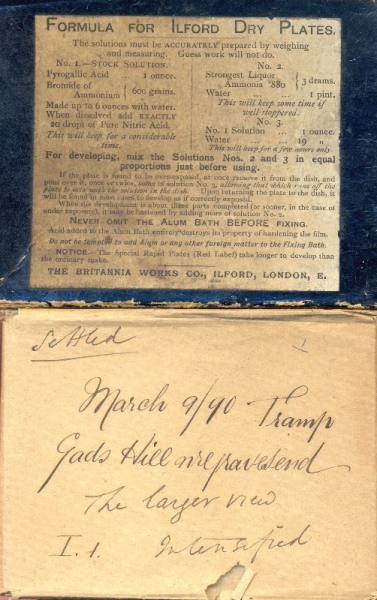 FORMULA FOR ILFORD DRY PLATES.
The solutions must be ACCURATELY prepared by weighing
and measuring. Guess work will not do.
No. 1.—STOCK SOLUTION.
Pyrogallic Acid ... 1 ounce.
Bromide of
Ammonium } 600 grains.
Made up to 6 ounces with water.
When dissolved add EXACTLY
20 drops of Pure Nitric Acid.
This will keep for a considerable
time.
No. 2.
Strongest Liquor
Ammonia ·880 } 3 drams.
Water ... ... 1 pint.
This will keep some time if
well stoppered.
No. 3.
No. 1 Solution ... 1 ounce.
Water ... ... 19 „
This will keep for a few hours only.
For developing, mix the Solutions Nos. 2 and 3 in equal
proportions just before using.
If the plate is found to be over-exposed, at once remove it from the dish, and
pour over it, once or twice, some of solution No. 3, allowing that which runs off the
plate to mix with the solution in the dish. Upon returning the plate to the dish, it
will be found in most cases to develop as if correctly exposed.
When the development is about three parts completed (or sooner, in the case of
under exposure), it may be hastened by adding more of solution No. 2.
NEVER OMIT THE ALUM BATH BEFORE FIXING.
Acid added to the Alum Bath entirely destroys its property of hardening the film.
Do not be tempted to add Alum or any other foreign matter to the Fixing Bath.
NOTICE.—The Special Rapid Plates (Red Label) take longer to develop than
the ordinary make.
THE BRITANNIA WORKS CO., ILFORD, LONDON, E.
Settled
March 9/90 Tramp
Gads Hill nr gravesend
The larger view
I. 1. Intensified